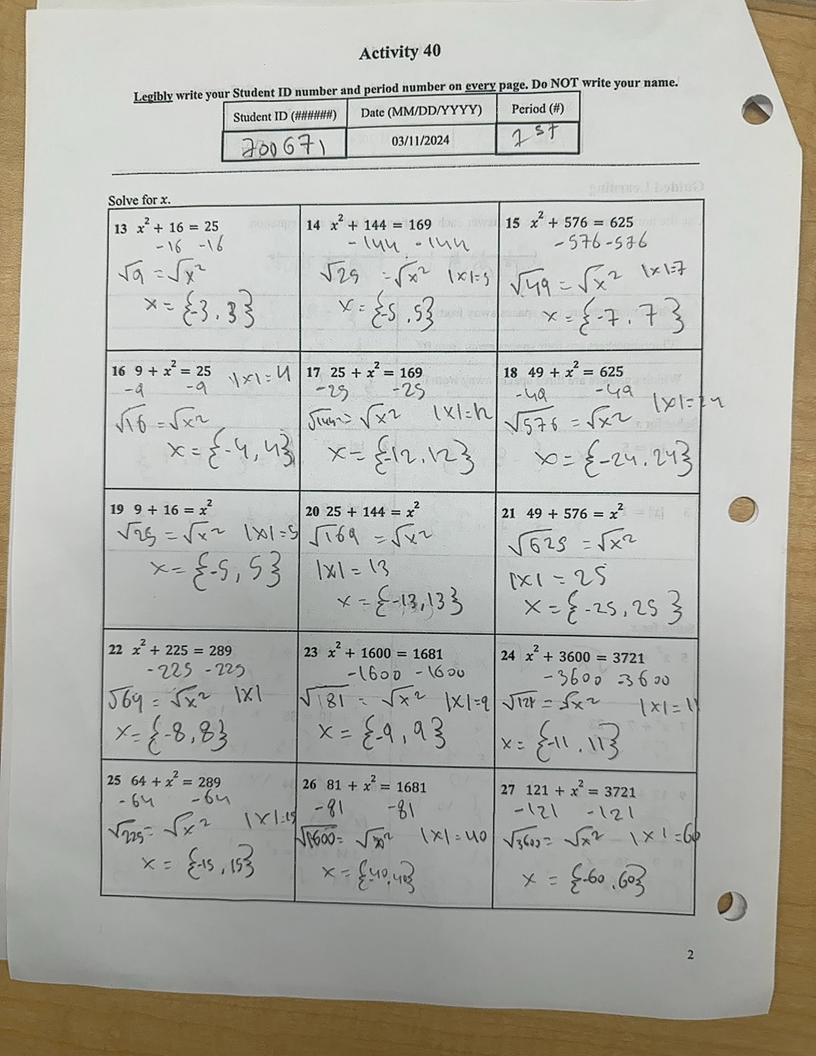 Activity 40
Legibly write your Student ID number and period number on every page. Do NOT write your name.
Student ID (######) Date (MM/DD/YYYY) Period (#)
700671 03/11/2024 1st
Solve for x.
13 x² + 16 = 25
-16 -16
√9 = √x²
x = {-3, 3}
14 x² + 144 = 169
-144 -144
√25 = √x² |x|=5
x = {-5, 5}
15 x² + 576 = 625
-576 -576
√49 = √x² |x|=7
x = {-7, 7}
16 9 + x² = 25
-9 -9 |x|=4
√16 = √x²
x = {-4, 4}
17 25 + x² = 169
-25 -25
√144 = √x² |x|=12
x = {-12, 12}
18 49 + x² = 625
-49 -49
√576 = √x² |x|=24
x = {-24, 24}
19 9 + 16 = x²
√25 = √x² |x|=5
x = {-5, 5}
20 25 + 144 = x²
√169 = √x²
|x| = 13
x = {-13, 13}
21 49 + 576 = x²
√625 = √x²
|x| = 25
x = {-25, 25}
22 x² + 225 = 289
-225 -225
√64 = √x² |x|
x = {-8, 8}
23 x² + 1600 = 1681
-1600 -1600
√81 = √x² |x|=9
x = {-9, 9}
24 x² + 3600 = 3721
-3600 -3600
√121 = √x² |x|=11
x = {-11, 11}
25 64 + x² = 289
-64 -64
√225 = √x² |x|=15
x = {-15, 15}
26 81 + x² = 1681
-81 -81
√1600 = √x² |x|=40
x = {-40, 40}
27 121 + x² = 3721
-121 -121
√3600 = √x² |x|=60
x = {-60, 60}
2